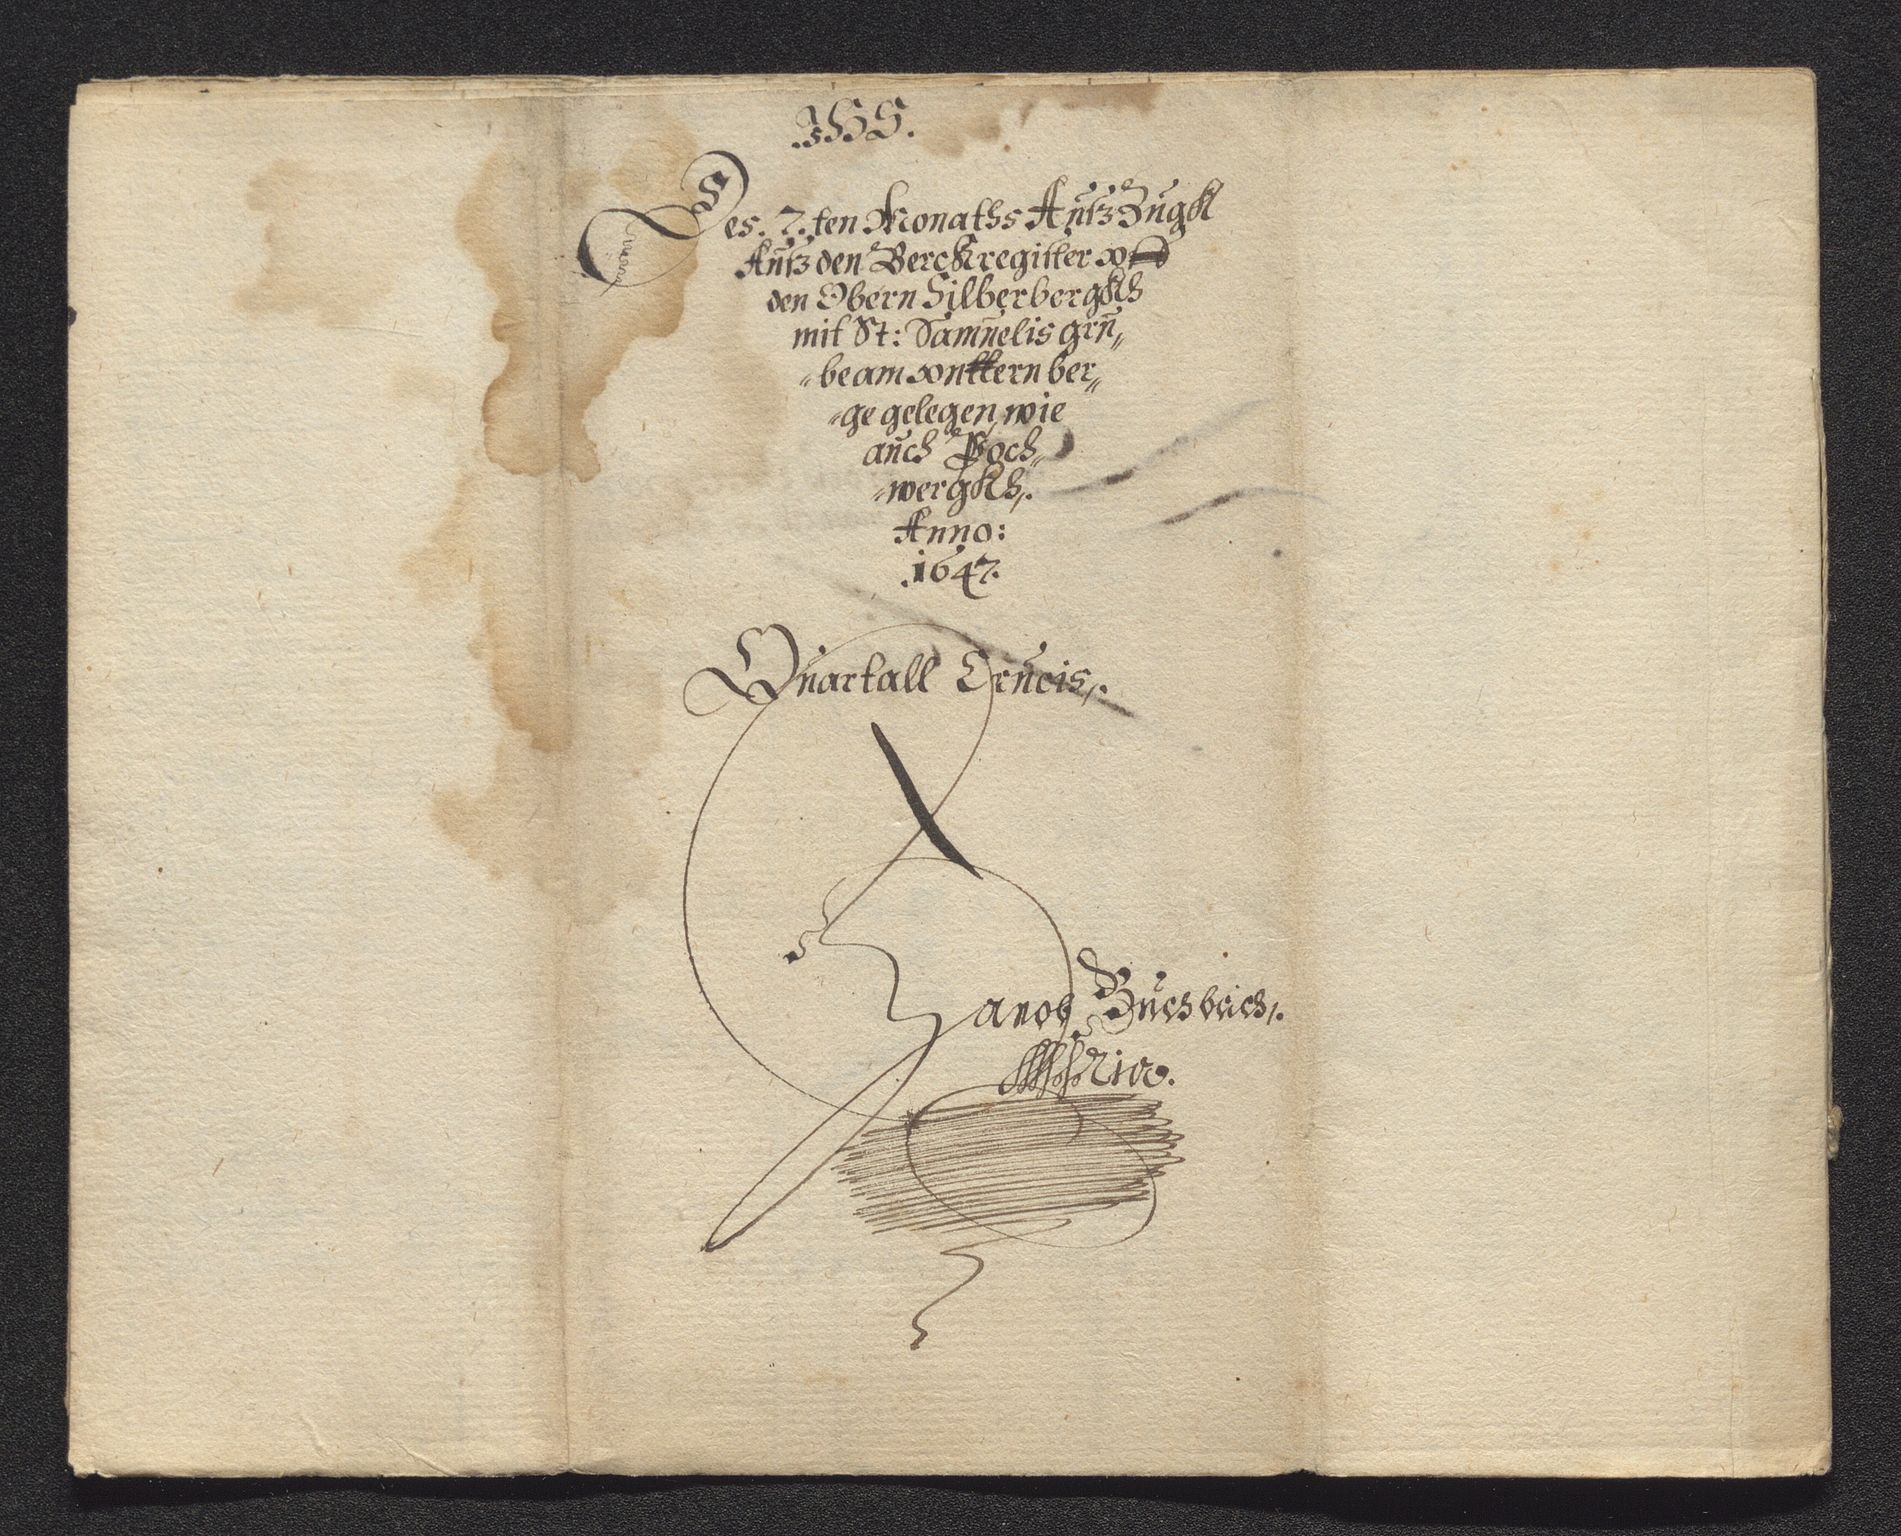 .JHS.
Des. 7.ten Monaths Außzugk
Auß den Berckregister
den Obern Silberbergkh
mit St: Samuelis gru„
„be am vnttern ber„
„ge gelegen, wie
auch Poch„
„wergkh,.
Anno:
.1647.
Quartall Crucis,.